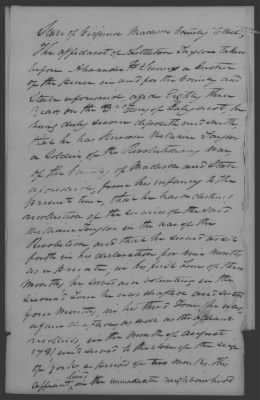 State of Virginia Madison County to wit,
The affidavit of Littleton Taylor taken
before Alexander H a Justice
of the peace in and for the county and
State aforesaid aged Eighty three
years on the day of July next, he
being duly sworn deposeth and saith
that he has known William Taylor
a Soldier of the Revolutionary War
of the County of Madison and State
aforesaid, from his infancy to the
present time, that he has a distinct
recollection of the services of the said
William Taylor in the war of the
Revolution, and that he served as set
forth in his declaration for nine months
as a private, in his first Tour of three
Months, he served as a volunteer, in the
second Tour he was drafted and served
four Months, in his third Tour, he was
again as well as the affiant
recollects, in the month of August
1781 and served to the close of the siege
of York a tour of two months, this
affiant, lives in the immediate neighbourhood